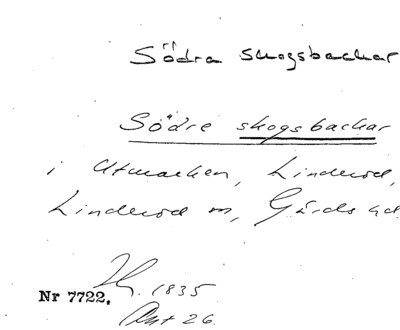 Södra skogsbackar
Södre skogsbackar
i Utmarken, Linderöd,
Linderöd sn, Gärds hd.
1835
Nr 7722.
Akt 26.